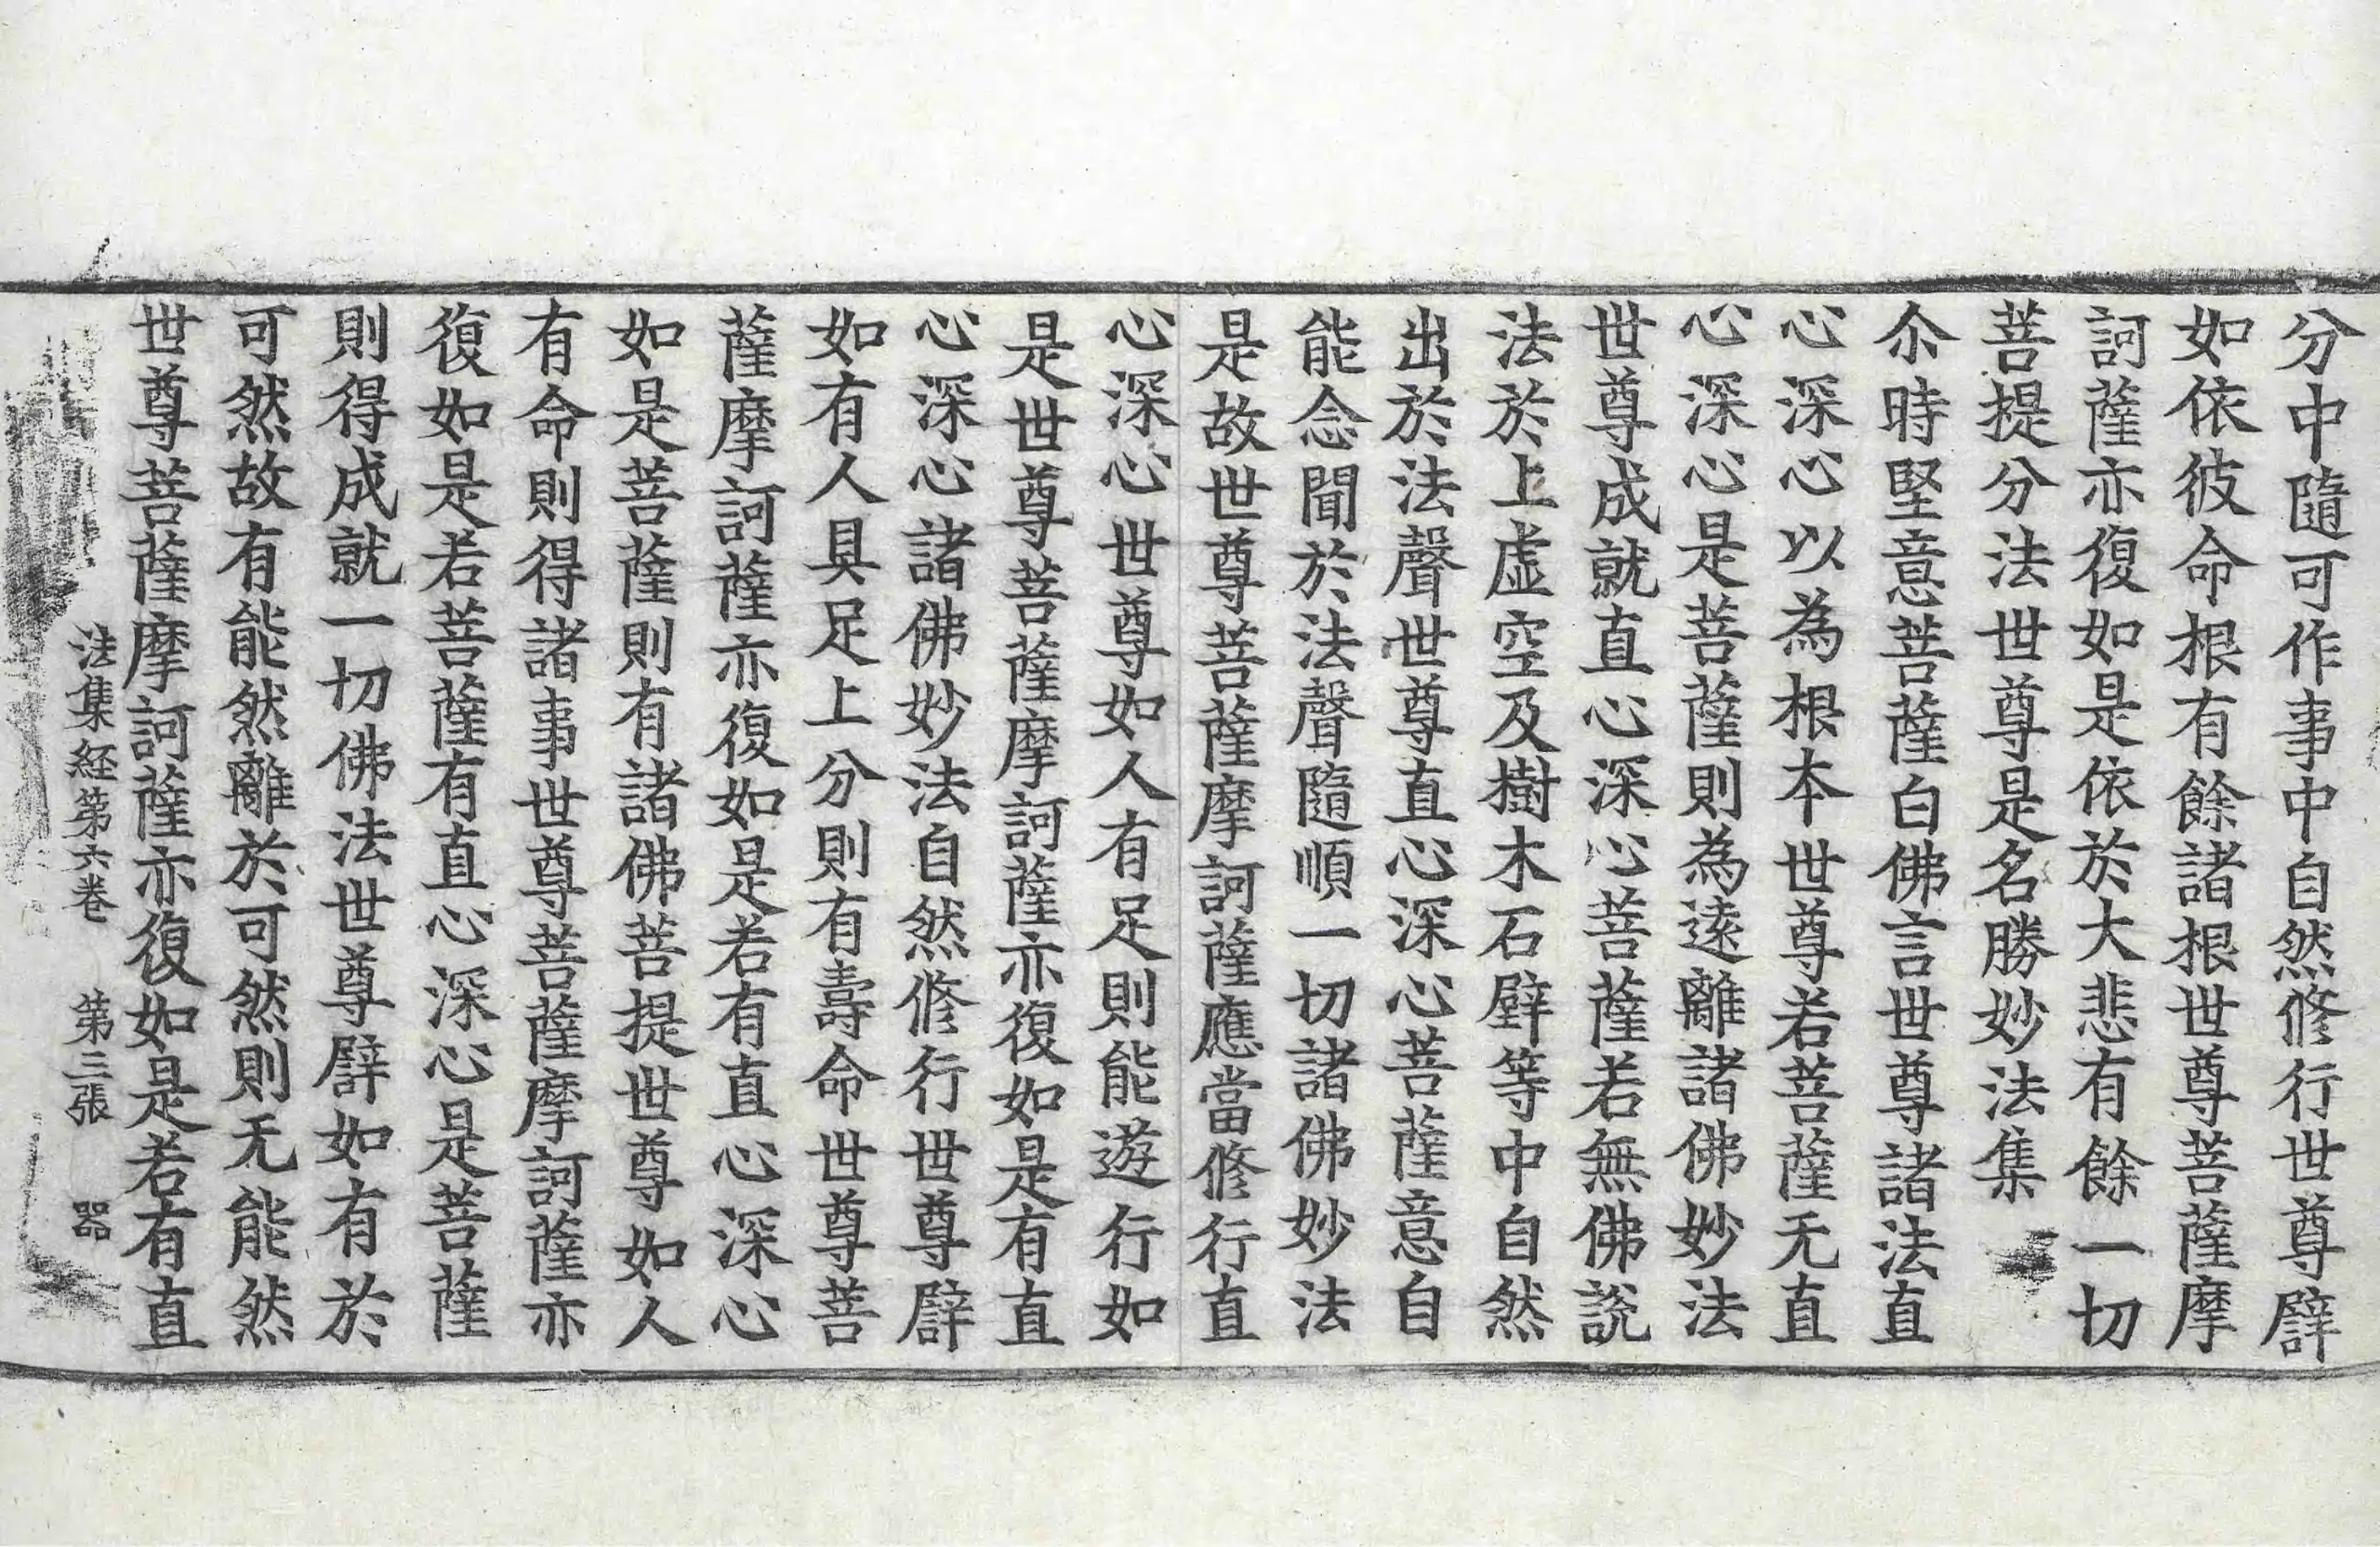 分中隨可作事中自然脩行世尊譬
如依彼命根有餘諸根世尊菩薩摩
訶薩亦復如是依於大悲有餘一切
菩提分法世尊是名勝妙法集
尒時堅意菩薩白佛言世尊諸法直
心深心以為根本世尊若菩薩无直
心深心是菩薩則為遠離諸佛妙法
世尊成就直心深心菩薩若無佛說
法於上虛空及樹木石壁等中自然
出於法聲世尊直心深心菩薩意自
能念聞於法聲隨順一切諸佛妙法
是故世尊菩薩摩訶薩應當脩行直
心深心世尊如人有足則能遊行如
是世尊菩薩摩訶薩亦復如是有直
心深心諸佛妙法自然脩行世尊譬
如有人具足上分則有壽命世尊菩
薩摩訶薩亦復如是若有直心深心
如是菩薩則有諸佛菩提世尊如人
有命則得諸事世尊菩薩摩訶薩亦
復如是若菩薩有直心深心是菩薩
則得成就一切佛法世尊譬如有於
可然故有能然離於可然則无能然
世尊菩薩摩訶薩亦復如是若有直
法集経第六卷 第三張 器